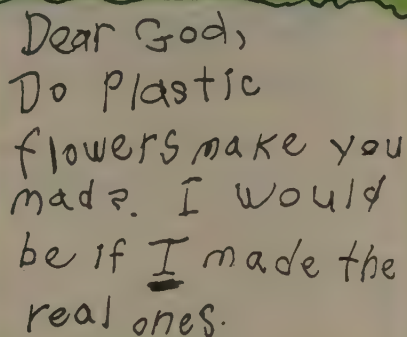 Dear God,
Do Plastic
flowers make you
mad?. I would
be if I made the
real ones.